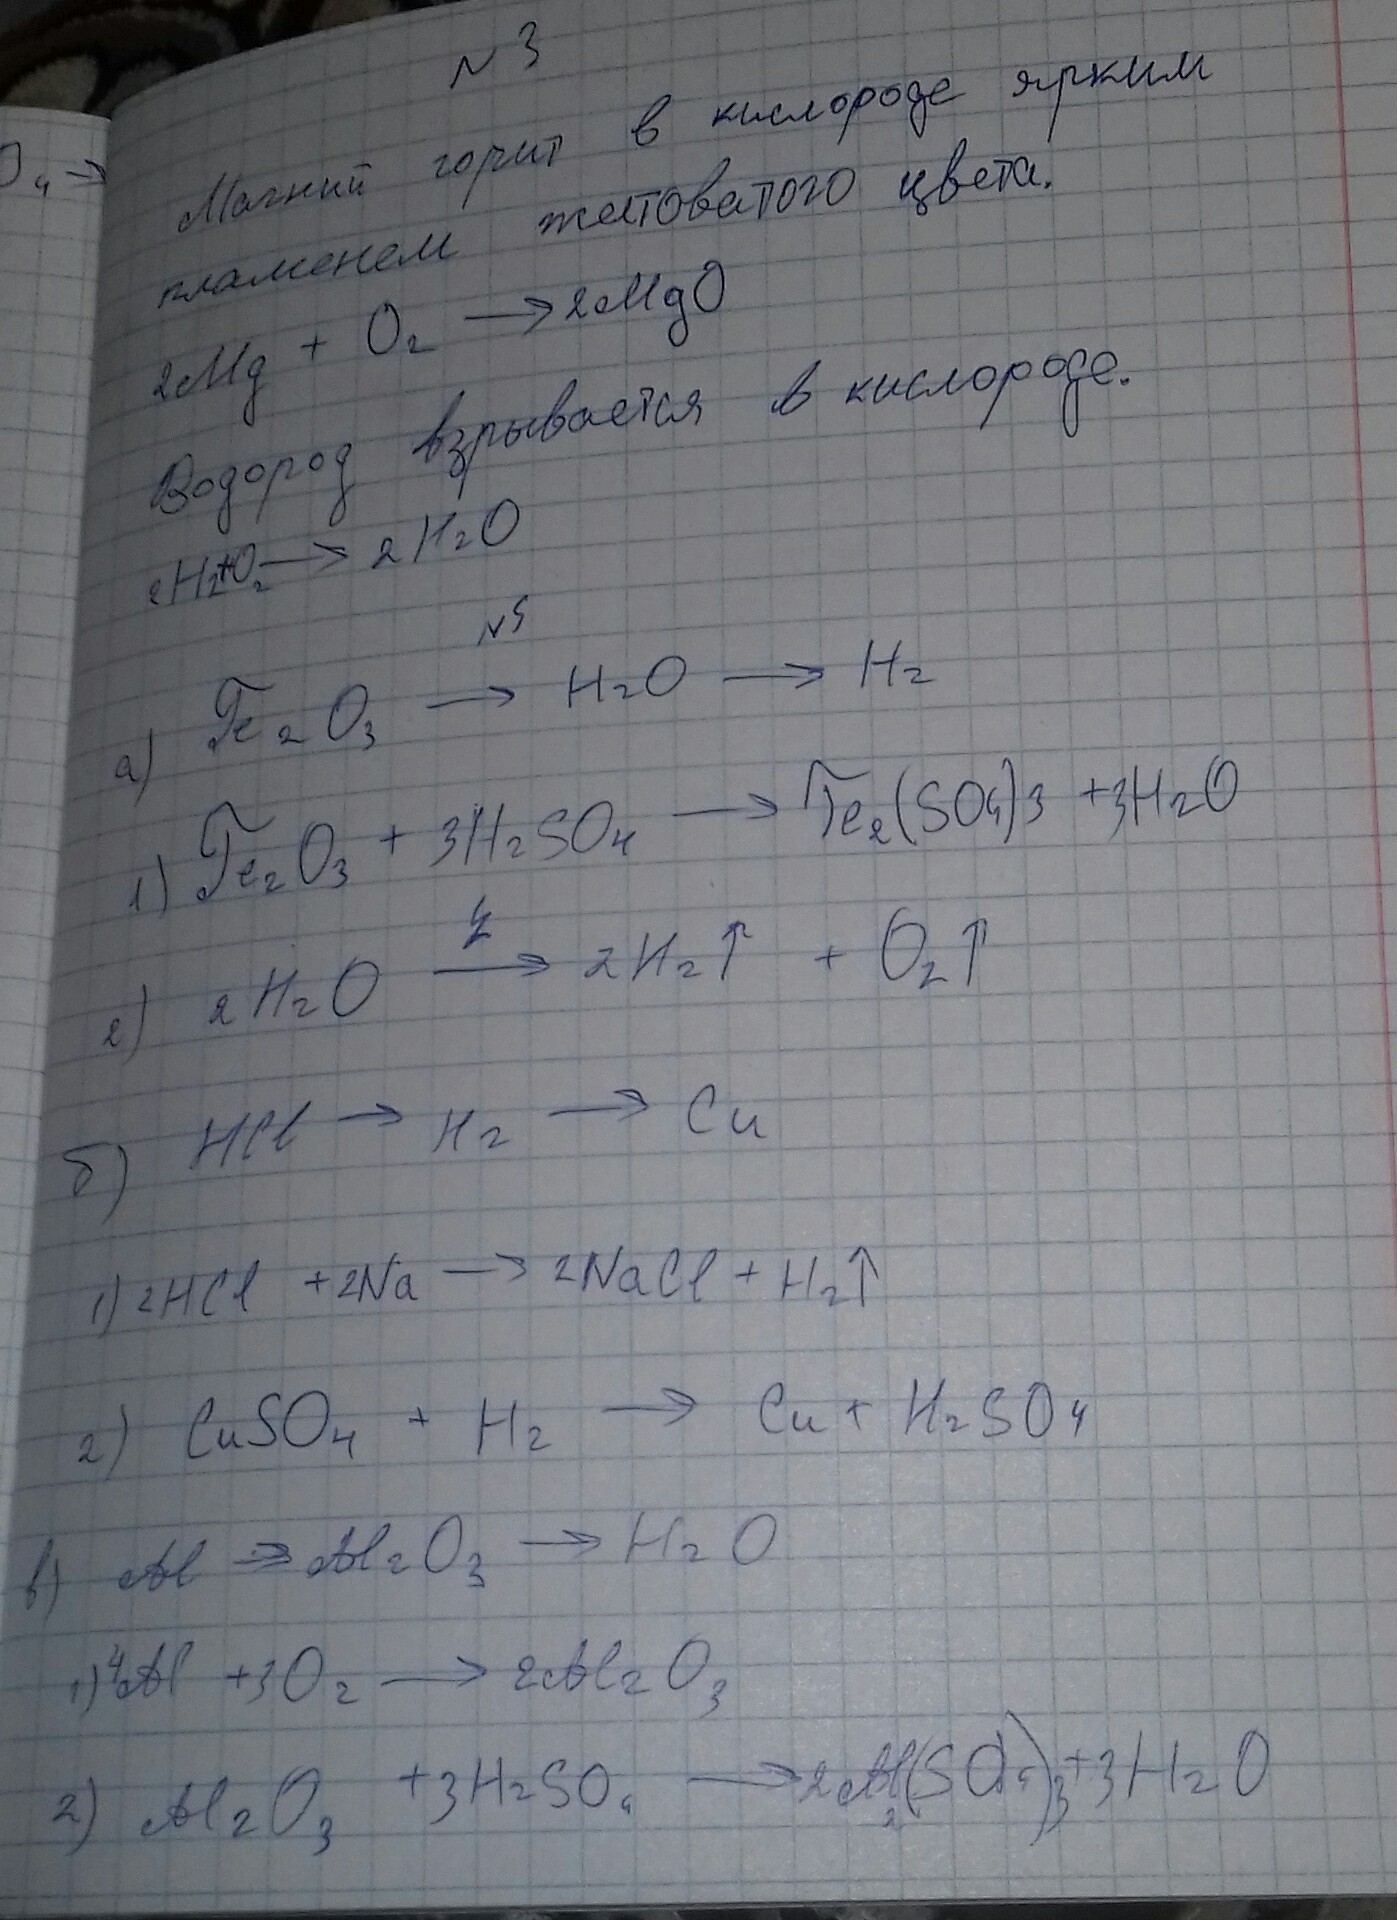 O₄ →
№3
Магний горит в кислороде ярким
пламенем желтоватого цвета.
2Mg + O₂ → 2MgO
Водород взрывается в кислороде.
2H₂+O₂ → 2H₂O
№5
а) Fe₂O₃ → H₂O → H₂
1) Fe₂O₃ + 3H₂SO₄ → Fe₂(SO₄)3 + 3H₂O
2) 2H₂O → 2H₂↑ + O₂↑
б) HCl → H₂ → Cu
1) 2HCl + 2Na → 2NaCl + H₂↑
2) CuSO₄ + H₂ → Cu + H₂SO₄
в) Al → Al₂O₃ → H₂O
1) 4Al + 3O₂ → 2Al₂O₃
2) Al₂O₃ + 3H₂SO₄ → 2Al₂(SO₄)₃ + 3H₂O